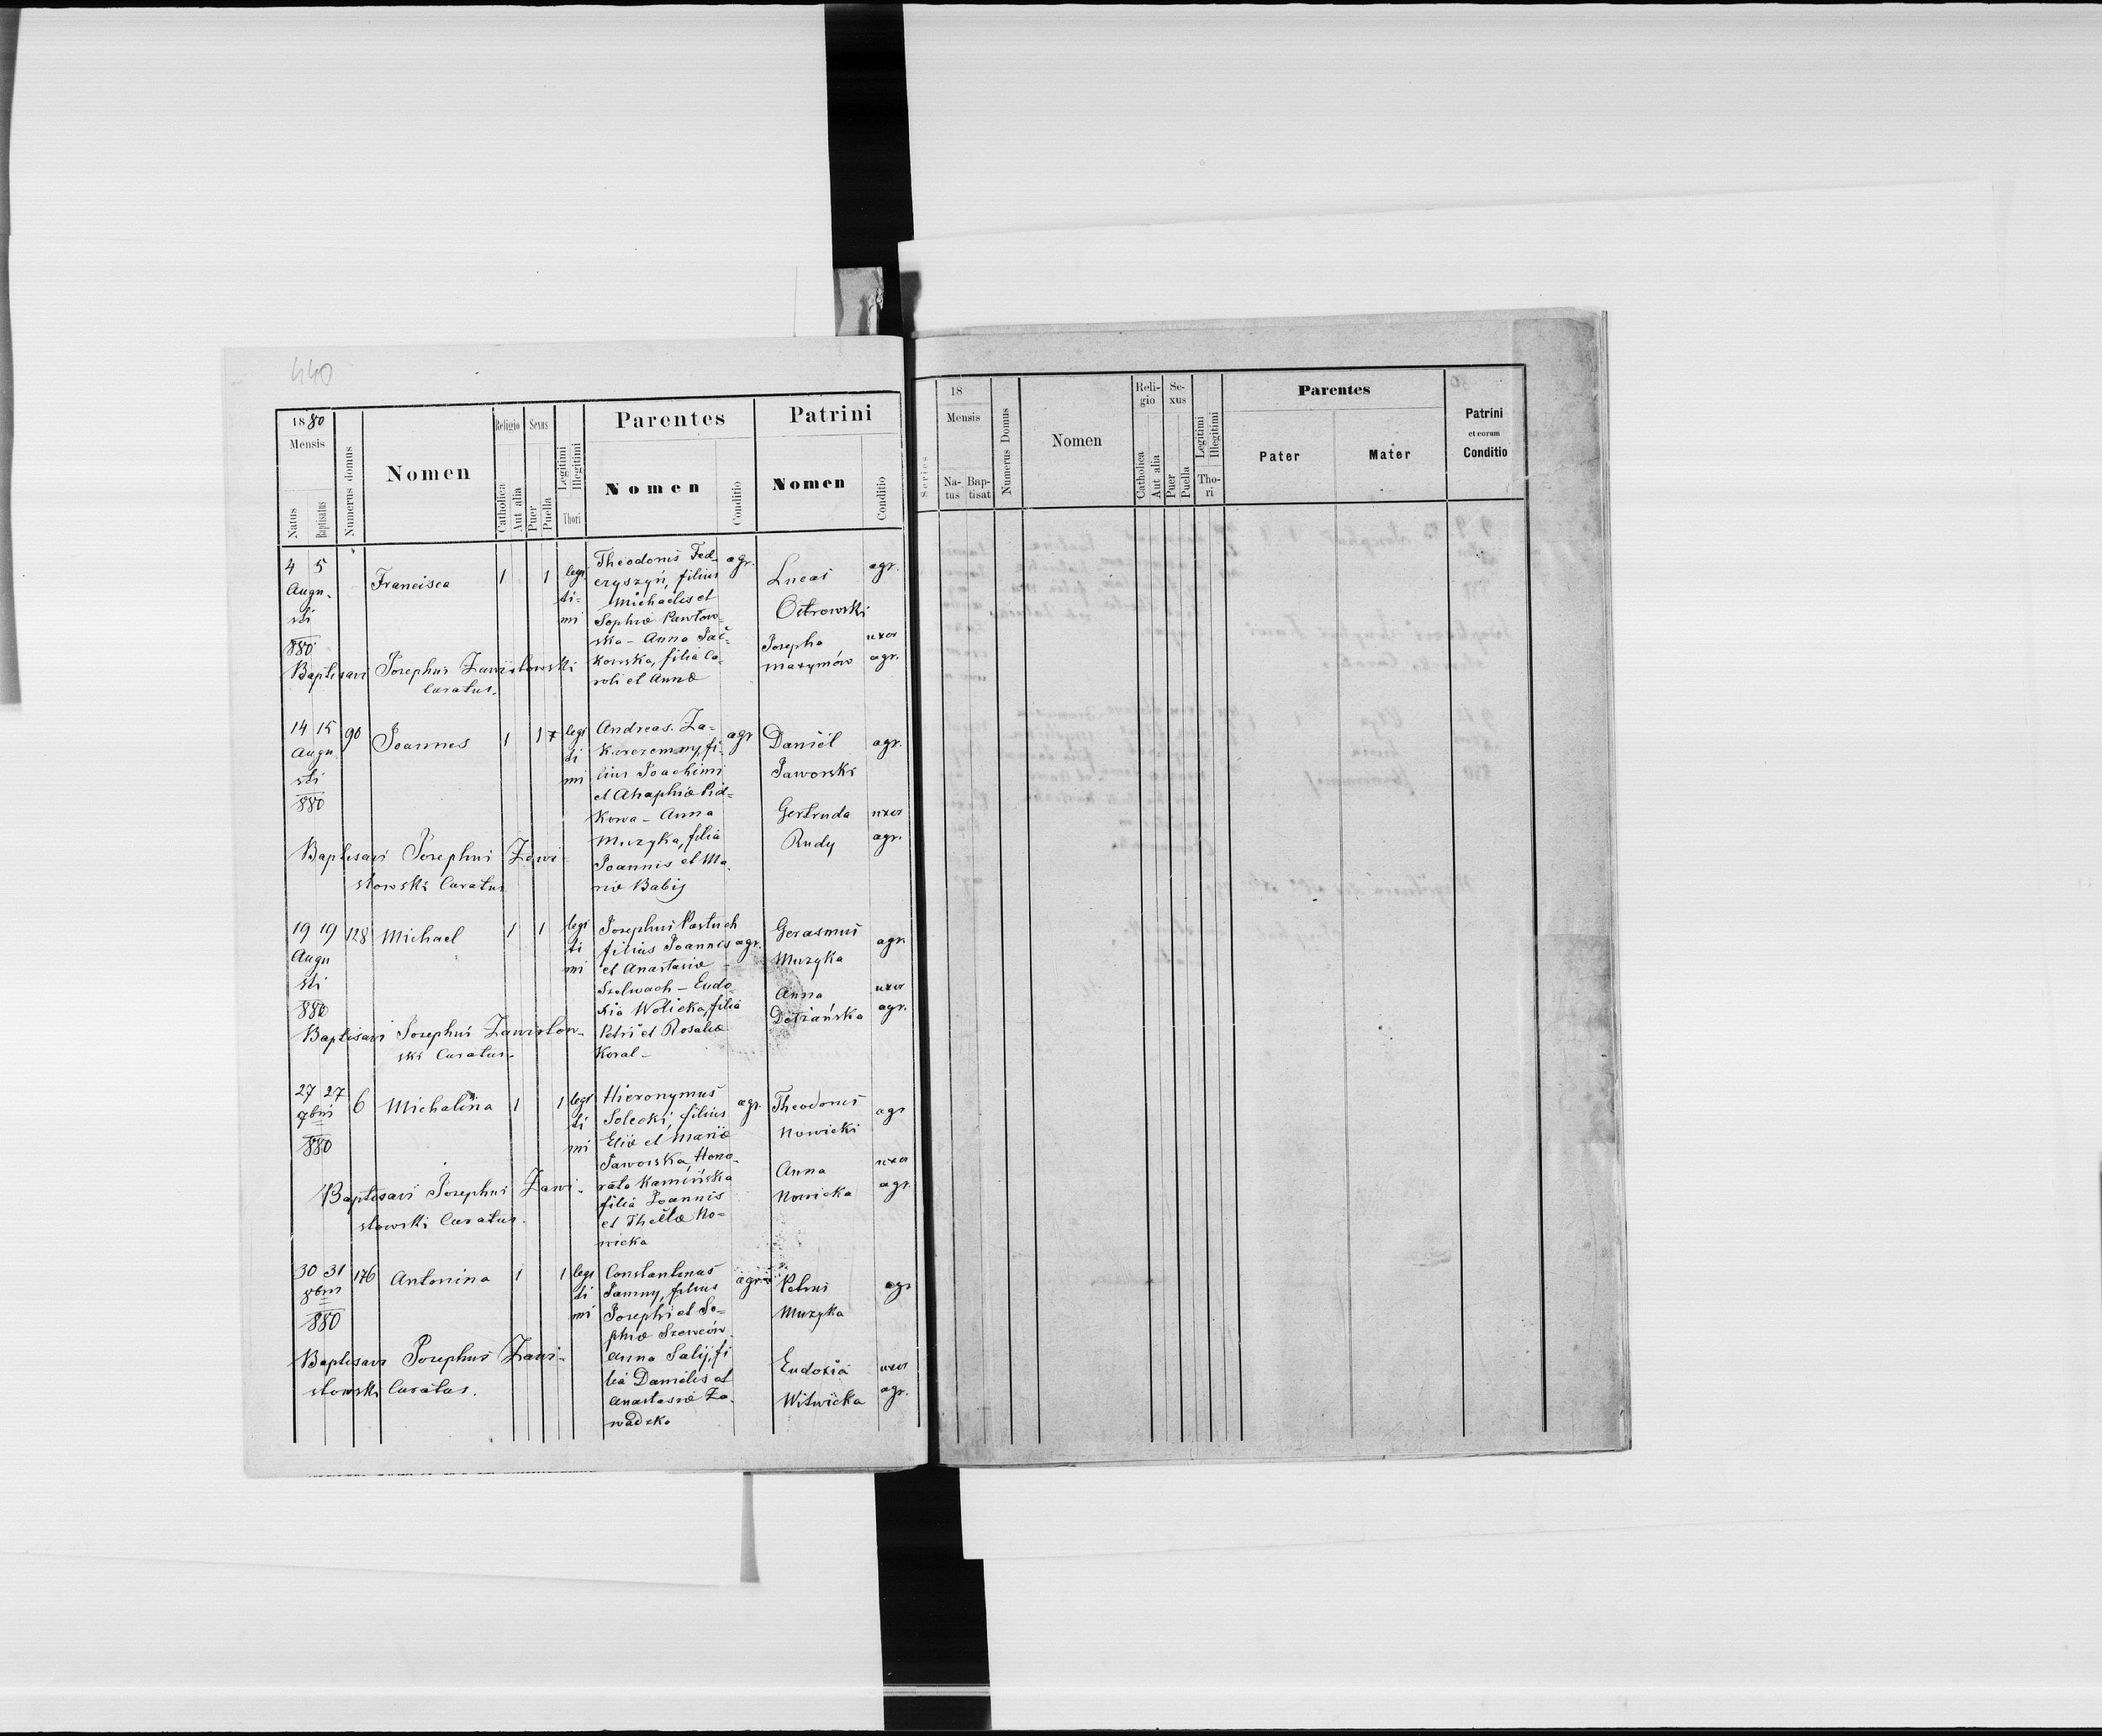 440
1880
Mensis
Natus
Baptisatus
Numerus domus
Nomen
Religio
Catholica
Aut alia
Sexus
Puer
Puella
Legitimi
Illegitimi
Thori
Parentes
Nomen
Conditio
Patrini
Nomen
Conditio
4 5
Augu-
sti
880
Francisca
1 1
legi
ti-
mi
Theodorus Fed-
eryszyń, filius
Michaelis et
Sophiæ Pawłow-
ska - Anna
kowska, filia Ca-
roli et Annæ
agr.
Lucas
Ostrowski
agr.
Josepha
Maxymów
uxor
agr.
Baptisavi Josephus Zawisłowski
Curatus.
14 15
Augu
sti
880
90
Joannes
1 1
legi
ti
mi
Andreas Za-
karczemny, fi-
lius Joachimi
et Ahaphiæ Did-
kowa - Anna
Muzyka, filia
Joannis et Ma-
riæ Babij
agr
Daniel
Jaworski
agr.
Gertruda
Rudy
uxor
agr.
Baptisavi Josephus Zawi-
słowski Curatus
19 19
Augu
sti
880
128
Michael
1 1
legi
ti
mi
Josephus Pastuch
filius Joannis
et Anastasiæ
Szelwach - Eudo-
xia Wolicka, filia
Petri et Rosaliæ
Koral -
agr.
Gerasmus
Muzyka
agr.
Anna
Dolzańska
uxor
agr.
Baptisavi Josephus Zawisłow-
ski Curatus -
27 27
7bris
880
6
Michalina
1 1
legi
ti
mi
Hieronymus
Solecki, filius
Eliæ et Mariæ
Jaworska, Hono-
rata Kamińska
filia Joannis
et Theklæ No-
wicka
agr.
Theodorus
Nowicki
agr
Anna
Nowicka
uxor
agr.
Baptisavi Josephus Zawi-
słowski Curatus.
30 31
8bris
880
176
Antonina
1 1
legi
ti
mi
Constantinus
Jamny, filius
Josephi et So-
phiæ Szewców
Anna Salij, fi
lia Danielis et
Anastasiæ Za-
wadzka
agr
Petrus
Muzyka
agr
Eudoxia
Witwicka
uxor
agr.
Baptisavi Josephus Zawi-
słowski Curatus.
Series
18
Mensis
Na-
tus
Bap-
tisat
Numerus Domus
Nomen
Reli-
gio
Catholica
Aut alia
Se-
xus
Puer
Puella
Legitimi
Illegitimi
Tho-
ri
Parentes
Pater
Mater
Patrini
et eorum
Conditio